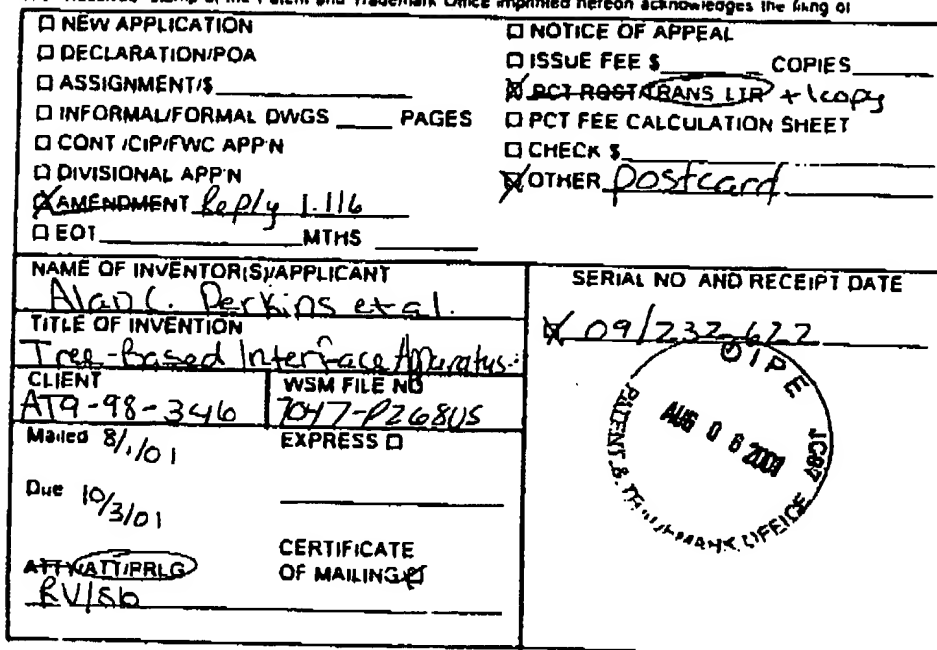 The "Received" stamp of the Patent and Trademark Office imprinted hereon acknowledges the filing of
☐ NEW APPLICATION
☐ DECLARATION/POA
☐ ASSIGNMENT/$
☐ INFORMAL/FORMAL DWGS ____ PAGES
☐ CONT /CIP/FWC APP'N
☐ DIVISIONAL APP'N
☒ AMENDMENT Reply 1.116
☐ EOT ____ MTHS ____
☐ NOTICE OF APPEAL
☐ ISSUE FEE $ ____ COPIES ____
☒ PCT RQST/TRANS LTR + 1 copy
☐ PCT FEE CALCULATION SHEET
☐ CHECK $
☒ OTHER postcard
NAME OF INVENTOR(S)/APPLICANT
Alan C. Perkins et al.
TITLE OF INVENTION
Tree-Based Interface Apparatus...
CLIENT
AT9-98-346
WSM FILE NO
7047-P268US
Mailed 8/1/01
EXPRESS ☐
Due 10/3/01
ATTY/ATT/PRLG
RV/sb
CERTIFICATE
OF MAILING ☒
SERIAL NO AND RECEIPT DATE
09/232,622
OIPE
AUG 06 2001
JC87
PATENT & TRADEMARK OFFICE